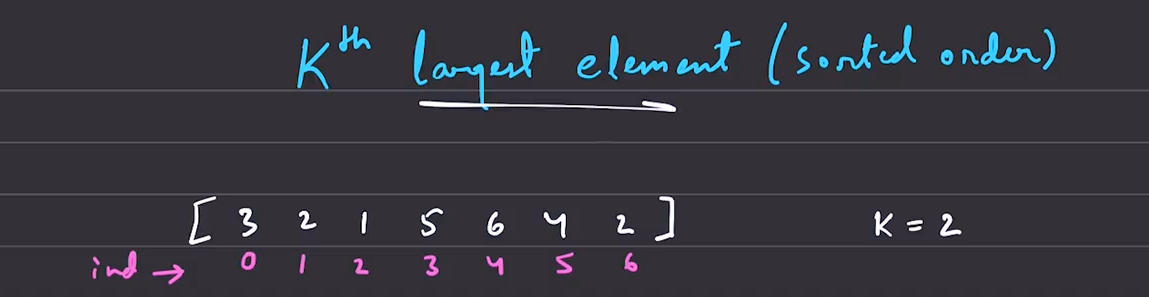 Kth largest element (sorted order)
[ 3 2 1 5 6 4 2 ] K = 2
ind → 0 1 2 3 4 5 6